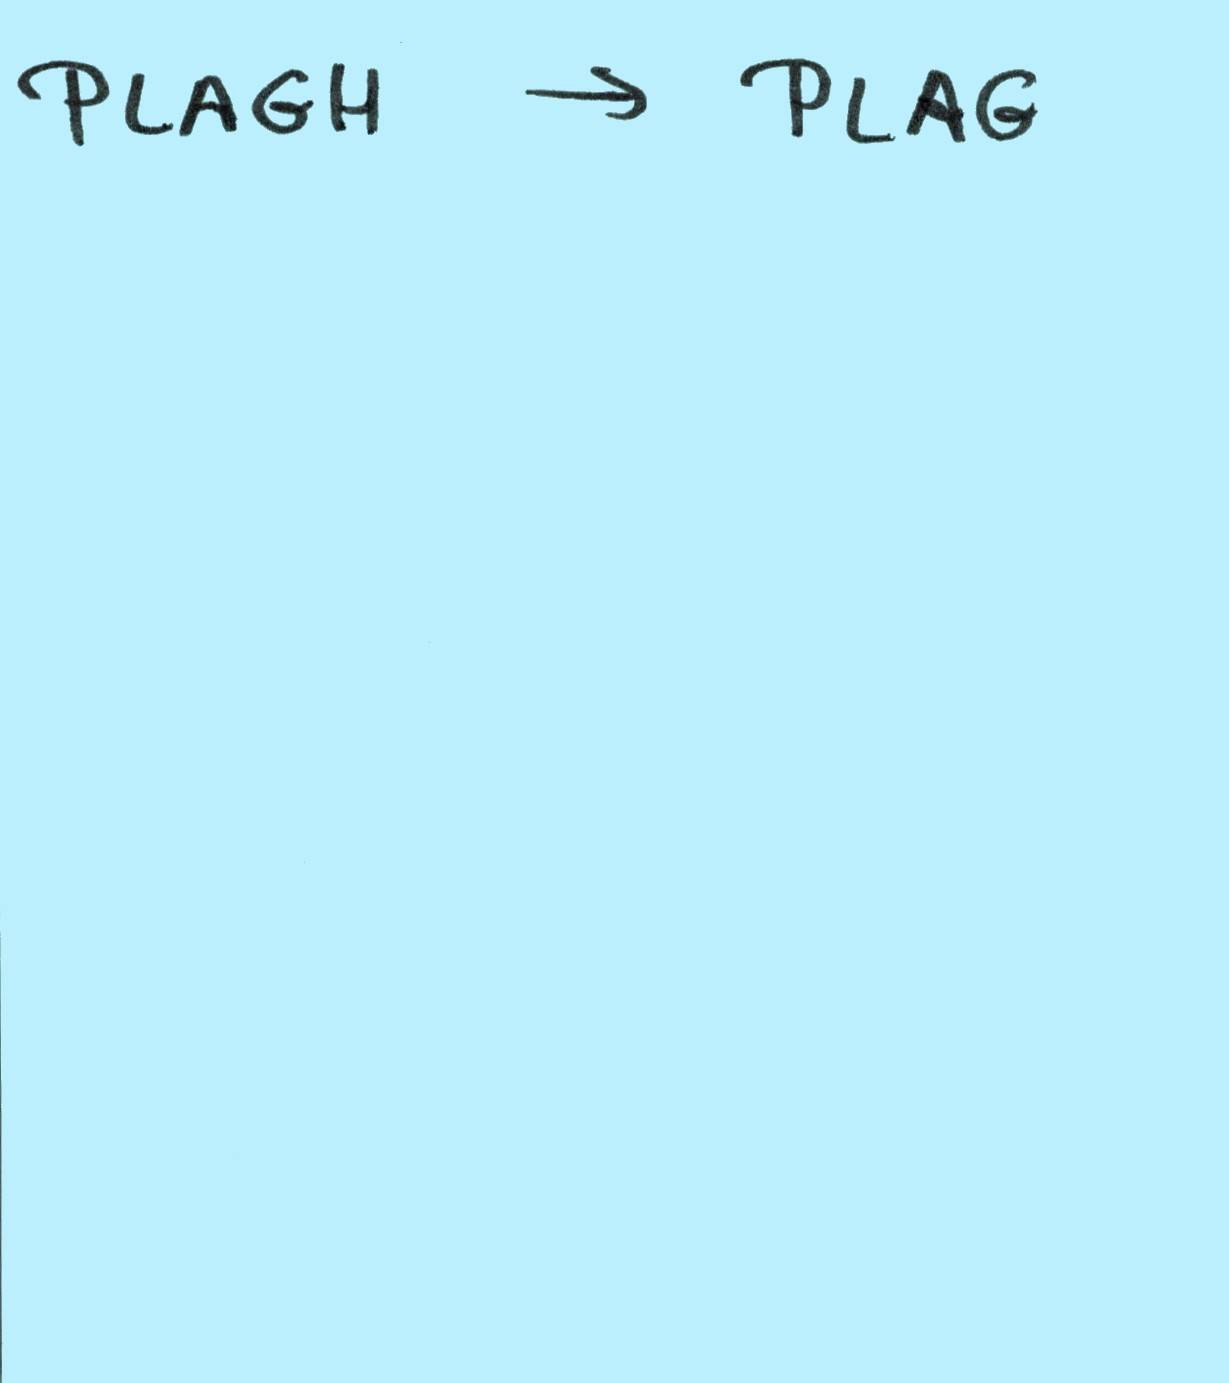 PLAGH → PLAG